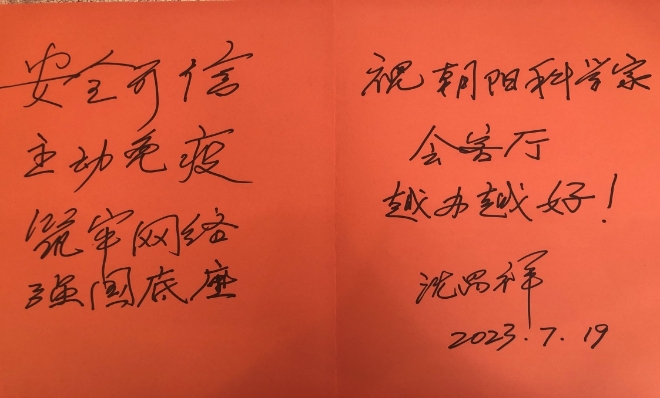 安全可信
主动免疫
筑牢网络
强国底座
祝朝阳科学家
会客厅
越办越好！
沈昌祥
2023.7.19